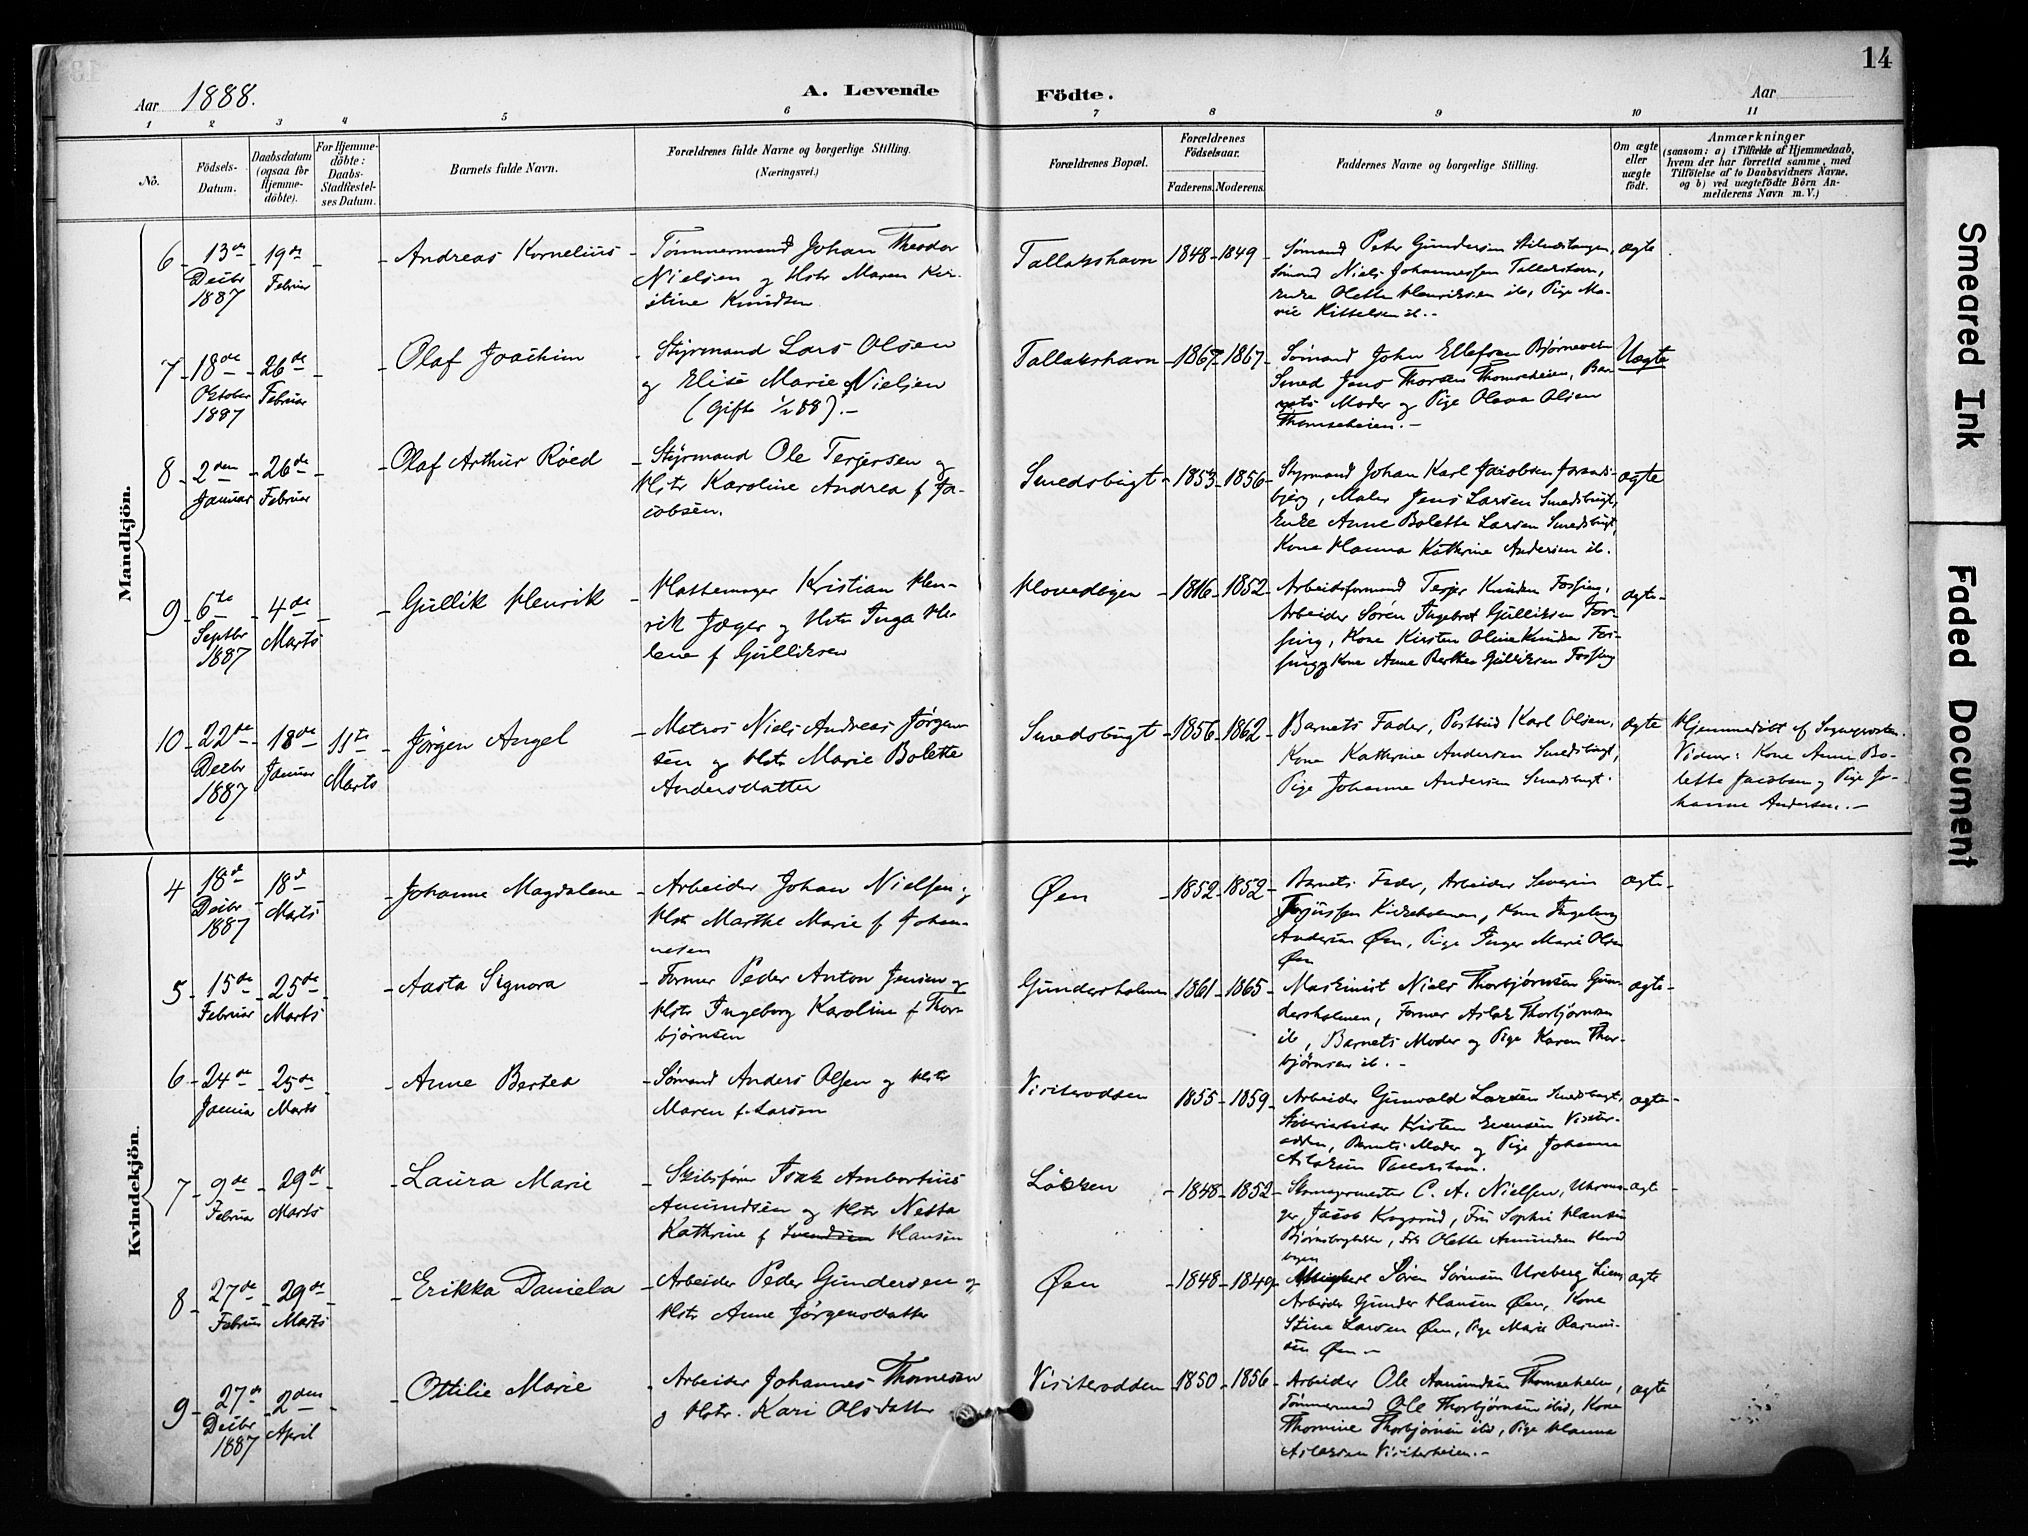 14
Aar 1888.
A. Levende Födte.
Aar
1 2 3 4 5 6 7 8 9 10 11
No.
Födsels-Datum.
Daabsdatum (ogsaa for Hjemme-döbte).
For Hjemme-döbte: Daabs-Stadfæstel-ses Datum.
Barnets fulde Navn.
Forældrenes fulde Navne og borgerlige Stilling.
(Næringsvei.)
Forældrenes Bopæl.
Forældrenes Födselsaar.
Faderens. Moderens.
Faddernes Navne og borgerlige Stilling.
Om ægte eller uægte födt.
Anmærkninger
(saasom: a) i Tilfælde af Hjemmedaab,
hvem der har forrettet samme, med
Tilföielse af to Daabsvidners Navne,
og b) ved uægtefödte Börn An-
melderens Navn m. V.)
Mandkjön.
6 13de Decbr 1887 19de Februar
Andreas Kornelius
Tømmermand Johan Theodor
Nielsen og Hstr Maren Kir-
stine Knudsen
Tallakshavn 1848 1849
Sømand Peter Gundersen
Sømand Niels Johannessen Tallakshavn,
Enke Olette Henriksen ib, Pige Ma-
rie Kittelsen ib.
ægte
7 18de Oktober 1887 26de Februar
Olaf Joachim
Styrmand Lars Olsen
og Elise Marie Nielsen
(Gifte 1/2 88).
Tallakshavn 1867 1867
Sømand John Ellefsen
Smed Jens Thorsen Thomseheien, Bar-
nets Moder og Pige Olava Olsen
Thomseheien.
Uægte
8 2den Januar 26de Februar
Olaf Arthur Röed
Styrmand Ole Terjersen og
Hstr Karoline Andrea f Ja-
cobsen.
Smedsbugt 1853 1856
Styrmand Johan Karl Jacobsen
bjerg, Maler Jens Larsen Smedsbugt,
Enke Anne Bolette Larsen Smedsbugt,
Kone Hanna Kathrine Andersen ib.
ægte
9 6te Septbr 1887 4de Marts
Gullik Henrik
Hattemager Kristian Hen-
rik Jæger og Hstr Inga He-
lene f Gulliksen
Hovedbyen 1852
Arbeidsformand Terjer Knudsen Fossing,
Arbeider Sören Ingebret Gulliksen Fos-
sing, Kone Kirsten Oline Knudsen Fos-
sing, Kone Anne Berthea Gulliksen Fossing
ægte
10 22de Decbr 1887 18de Januar 11te Marts
Jørgen Angel
Matros Niels Andreas Jørgen-
sen og Hstr Marie Bolette
Andersdatter
Smedsbugt 1856 1862
Barnets Fader, Postbud Karl Olsen,
Kone Kathrine Andersen Smedsbugt,
Pige Johanne Andersen Smedsbugt.
ægte
Hjemmedöbt af Sognepresten.
Vidner: Kone Anne Bo-
lette Jacobsen og Pige Jo-
hanne Andersen.
Kvindekjön.
4 18de Decbr 1887 18de Marts
Johanne Magdalene
Arbeider Johan Nielsen og
Hstr Marthe Marie f Johan-
nesen
Øen 1852 1852
Barnets Fader, Arbeider Severin
Kirkeholmen, Kone Ingeborg
Andersen Øen, Pige Inger Marie Olsen
Øen
ægte
5 15de Februar 25de Marts
Aasta Signora
Former Peder Anton Jensen og
Hstr Ingeborg Karoline f Thor-
bjørnsen
Gundersholmen 1861 1865
Maskinist Niels Thorbjørnsen Gun-
dersholmen, Former Aslak Thorbjørnsen
ib, Barnets Moder og Pige Karen Thor-
bjørnsen ib.
ægte
6 24de Januar 25de Marts
Anne Bertea
Sømand Anders Olsen og Hstr
Maren f. Larsen
Visiterodden 1855 1859
Arbeider Gunvald Larsen Smedsbugt,
Støberiarbeider Kristen Evensen Visiter-
odden, Barnets Moder og Pige Johanna
Aslaksen Tallakshavn.
ægte
7 9de Februar 29de Marts
Laura Marie
Skibsfører Isak Ambortius
Amundsen og Hstr Netta
Kathrine f Svendsen Hansen
Lökken 1848 1852
Skomagermester C. A. Nielsen, Uhrma-
ger Jacob Kragsrud, Fru Sophie Hansen
Olette Amundsen Hoved-
byen
ægte
8 27de Februar 29de Marts
Erikka Daniela
Arbeider Peder Gundersen og
Hstr Anne Jørgensdatter
Øen 1848 1849
Søren Sørensen
Arbeider Gunder Hansen Øen, Kone
Stine Larsen Øen, Pige Marie Rasmus-
sen Øen
ægte
9 27de Decbr 1887 2den April
Ottilie Marie
Arbeider Johannes Thomesen
og Hstr. Kari Olsdatter
Visiterodden 1850 1856
Arbeider Ole Aanundsen
Tømmermand Ole Thorbjørnsen ibid, Kone
Thomine Thorbjørnsen ibid, Pige Hanna
Aslaksen Visiterheien.
ægte
Smeared Ink
Faded Document